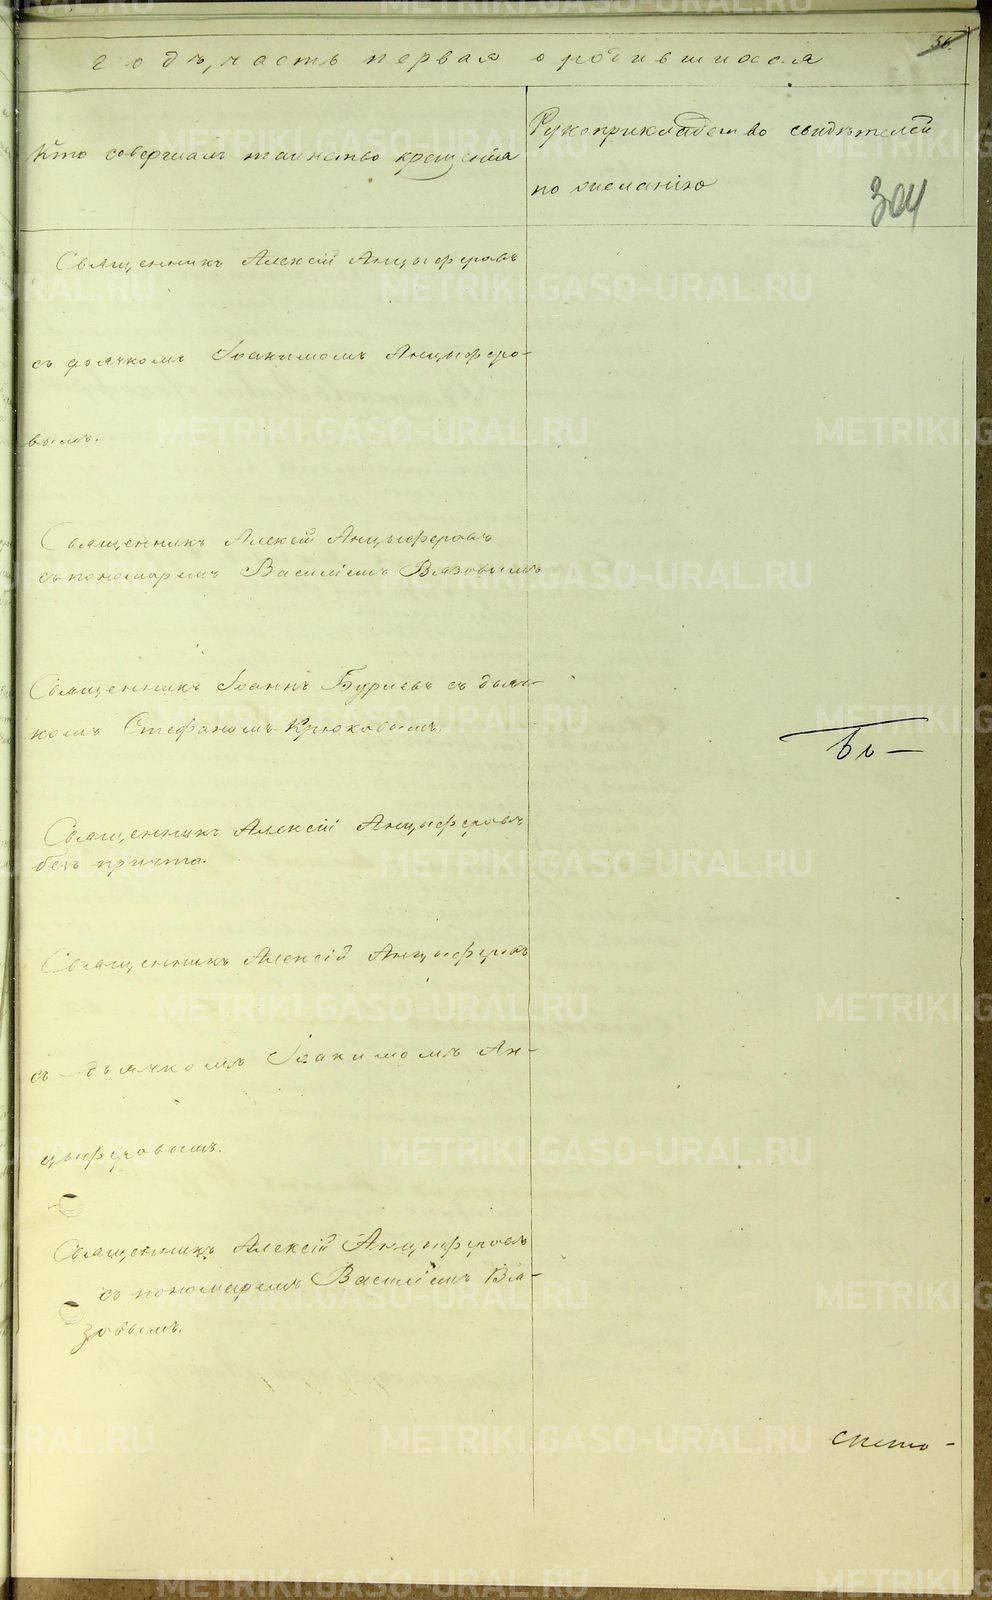 56
годъ, часть первая о родившихся
Кто совершалъ таинство крещенія
Рукоприкладство свидѣтелей
по желанію
304
Священникъ Алексій Анцыферовъ
съ дьячкомъ Іоакимомъ Анцыферо-
вымъ.
Священникъ Алексій Анцыферовъ
съ пономаремъ Василіемъ Вязовымъ
Священникъ Іоаннъ Бурлевъ съ дьяч-
комъ Стефаномъ Крюковымъ.
Священникъ Алексій Анцыферовъ
безъ причта.
Священникъ Алексій Анцыферовъ
съ дьячкомъ Іоакимомъ Ан-
цыферовымъ.
Священникъ Алексій Анцыферовъ
съ пономаремъ Василіемъ Вя-
зовымъ.
METRIKI.GASO-URAL.RU